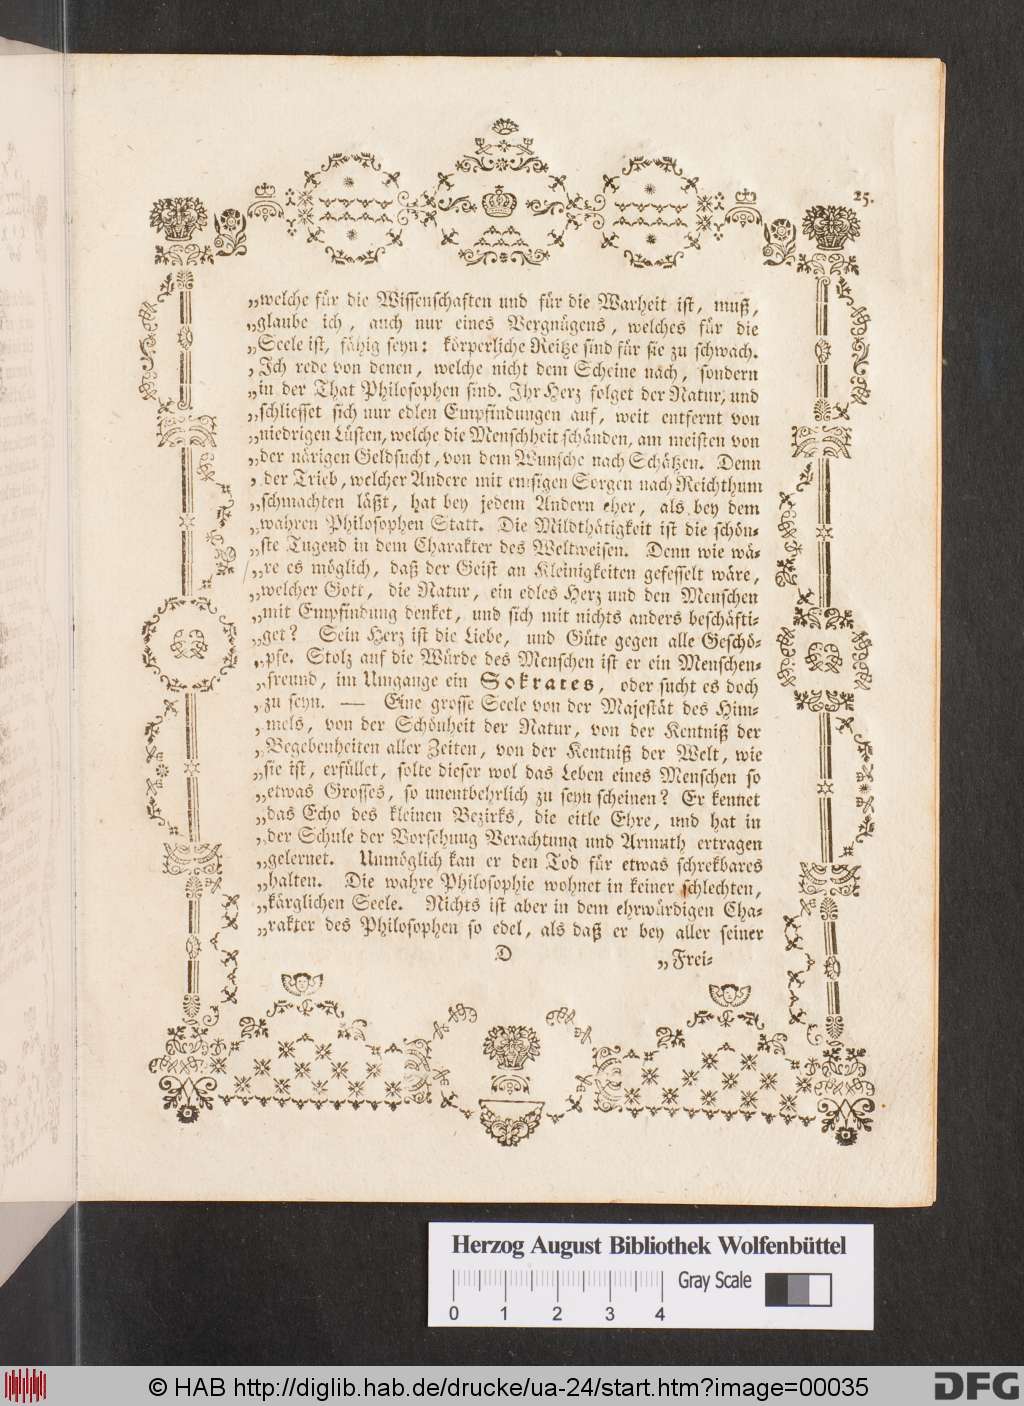 25.
„welche für die Wissenschaften und für die Warheit ist, muß,
„glaube ich, auch nur eines Vergnügens, welches für die
„Seele ist, fähig seyn: körperliche Reitze sind für sie zu schwach.
„Ich rede von denen, welche nicht dem Scheine nach, sondern
„in der That Philosophen sind. Ihr Herz folget der Natur, und
„schliesset sich nur edlen Empfindungen auf, weit entfernt von
„niedrigen Lüsten, welche die Menschheit schänden, am meisten von
„der närigen Geldsucht, von dem Wunsche nach Schätzen. Denn
„der Trieb, welcher Andere mit emsigen Sorgen nach Reichthum
„schmachten läßt, hat bey jedem Andern eher, als bey dem
„wahren Philosophen Statt. Die Mildthätigkeit ist die schön-
„ste Tugend in dem Charakter des Weltweisen. Denn wie wä-
„re es möglich, daß der Geist an Kleinigkeiten gefesselt wäre,
„welcher Gott, die Natur, ein edles Herz und den Menschen
„mit Empfindung denket, und sich mit nichts anders beschäfti-
„get? Sein Herz ist die Liebe, und Güte gegen alle Geschö-
„pfe. Stolz auf die Würde des Menschen ist er ein Menschen-
„freund, im Umgange ein Sokrates, oder sucht es doch
„zu seyn. — Eine grosse Seele von der Majestät des Him-
„mels, von der Schönheit der Natur, von der Kentniß der
„Begebenheiten aller Zeiten, von der Kentniß der Welt, wie
„sie ist, erfüllet, solte dieser wol das Leben eines Menschen so
„etwas Grosses, so unentbehrlich zu seyn scheinen? Er kennet
„das Echo des kleinen Bezirks, die eitle Ehre, und hat in
„der Schule der Vorsehung Verachtung und Armuth ertragen
„gelernet. Unmöglich kan er den Tod für etwas schrekbares
„halten. Die wahre Philosophie wohnet in keiner schlechten,
„kärglichen Seele. Nichts ist aber in dem ehrwürdigen Cha-
„rakter des Philosophen so edel, als daß er bey aller seiner
D „Frei-
Herzog August Bibliothek Wolfenbüttel
Gray Scale
0 1 2 3 4
© HAB http://diglib.hab.de/drucke/ua-24/start.htm?image=00035
DFG